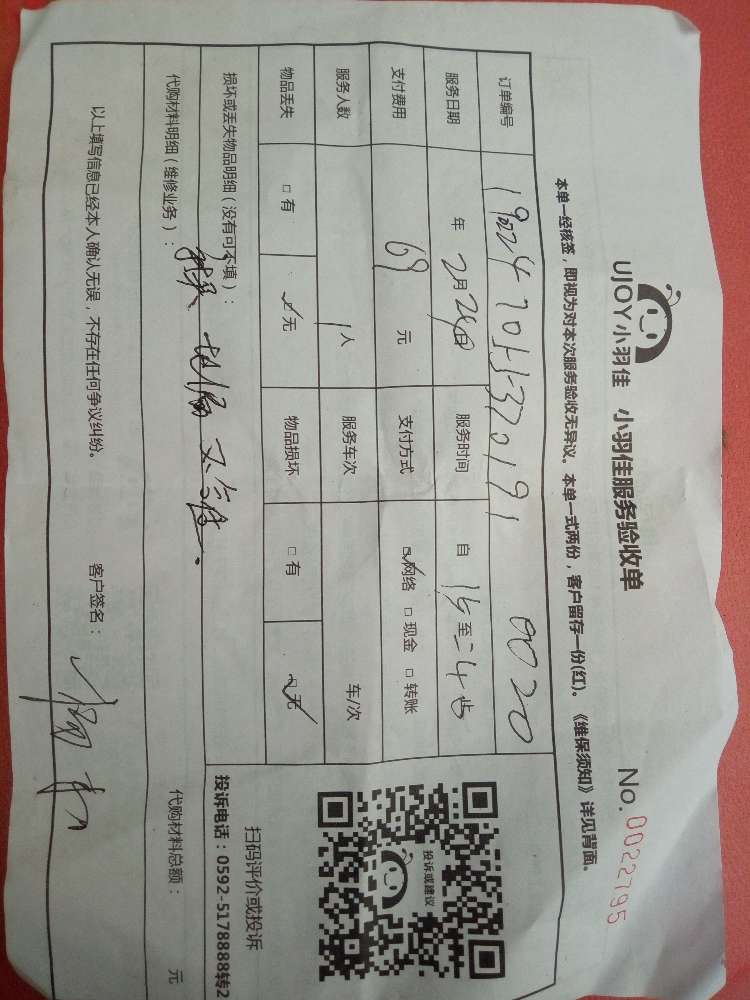 UJOY小羽佳 小羽佳服务验收单 No.0022795
本单一经核签，即视为对本次服务验收无异议。本单一式两份，客户留存一份(红)。《维保须知》详见背面。
订单编号 0020
服务日期 年 2月26日 服务时间 自 至
支付费用 69 元 支付方式 网络 □ 现金 □ 转账
服务人数 1人 服务车次 车/次
物品丢失 □ 有 ✓无 物品损坏 □ 有 ✓无
损坏或丢失物品明细（没有可不填）：
代购材料明细（维修业务）： 代购材料总额： 元
以上填写信息已经本人确认无误，不存在任何争议纠纷。 客户签名：
投诉或建议
扫码评价或投诉
投诉电话：0592-5178888转2